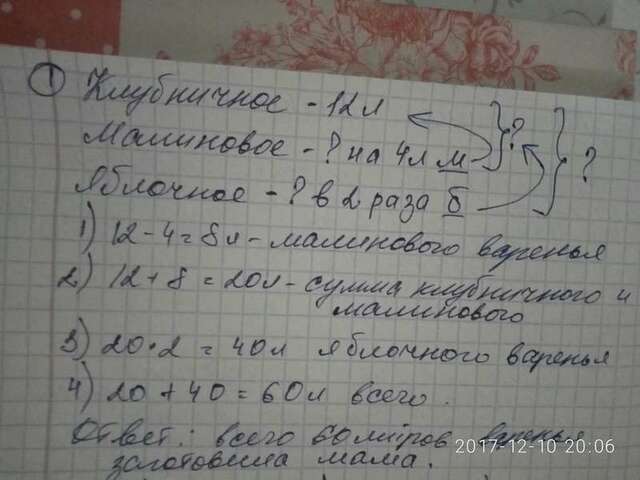 ① Клубничное - 12л
Малиновое - ? на 4л м }?
Яблочное - ? в 2 раза б }?
1) 12-4=8л - малинового варенья
2) 12+8=20л - сумма клубничного и
малинового
3) 20·2=40л яблочного варенья
4) 20+40=60л всего.
Ответ: всего 60 литров варенья
заготовила мама.
2017-12-10 20:06